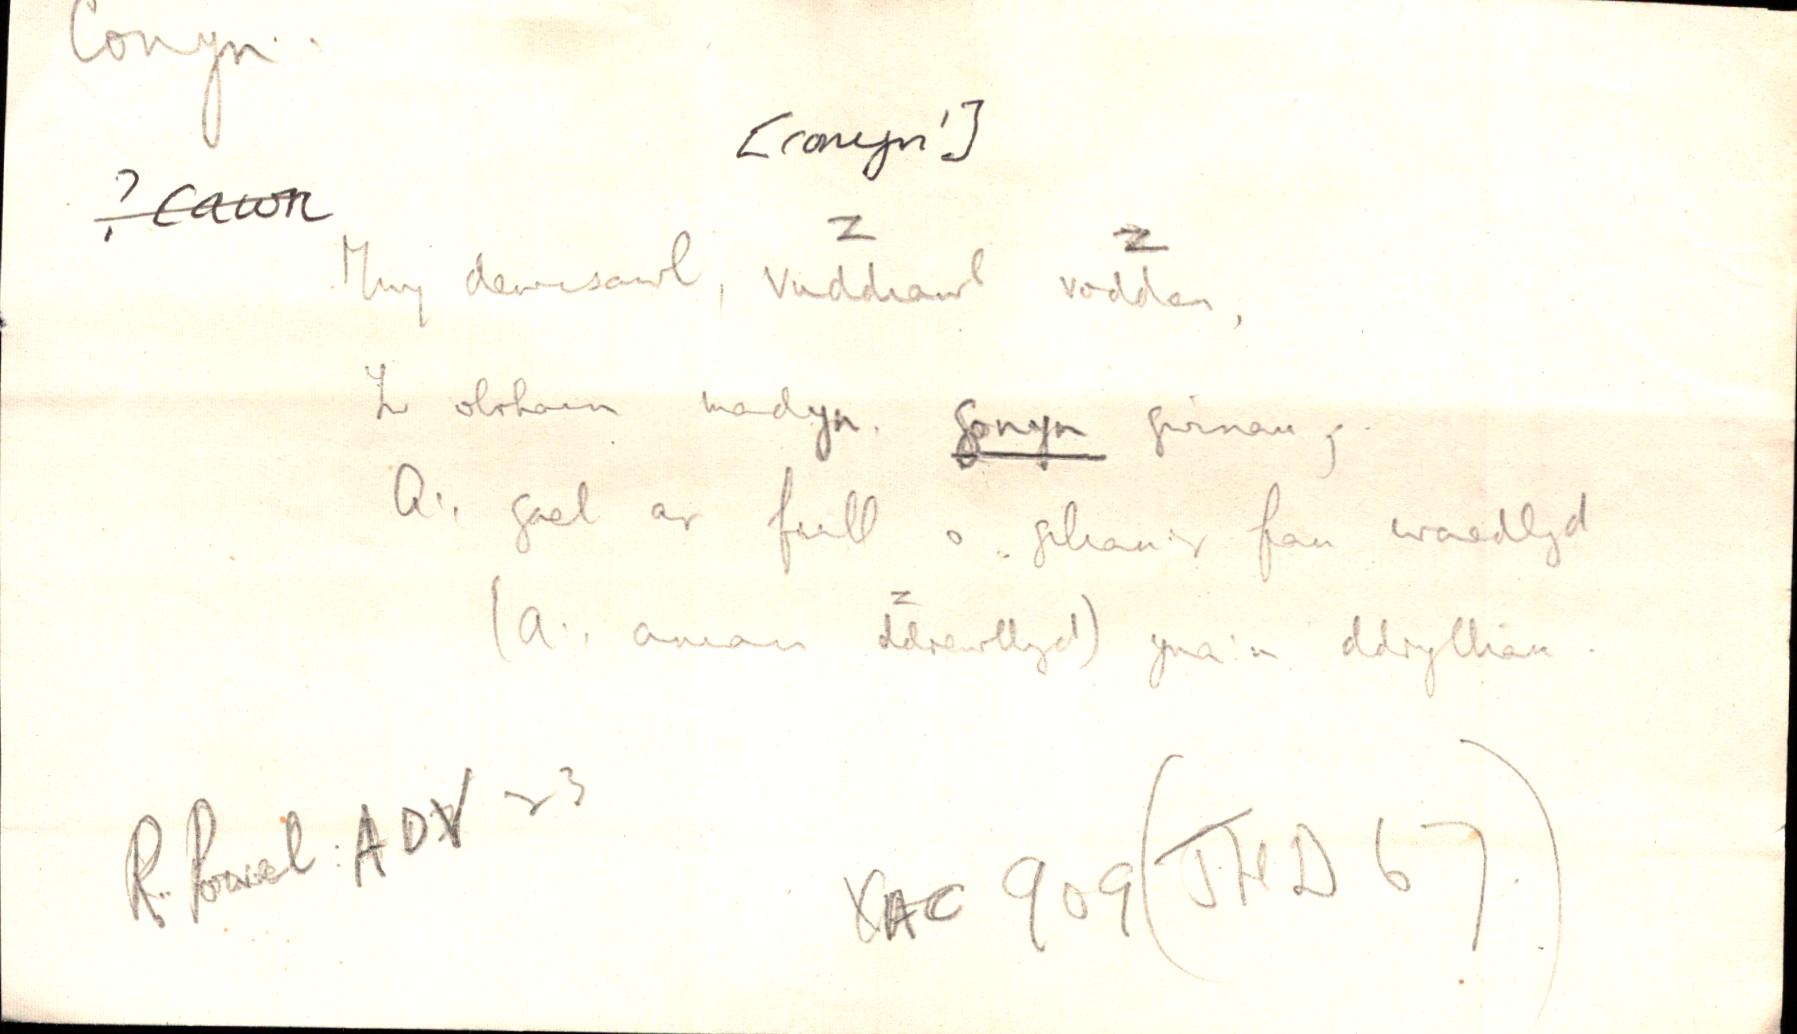 Conyn.
[conyn¹]
? cawn
Mwy dewisawl, vuddiawl voddau,
I olrhain madyn. gonyn gwinau;
A'i gael ar full o giliau'r fan waedlyd
(A'i anian ddrewllyd) yna'n ddrylliau.
R. Powel: ADV 23
XAC 909 (JHD 67)